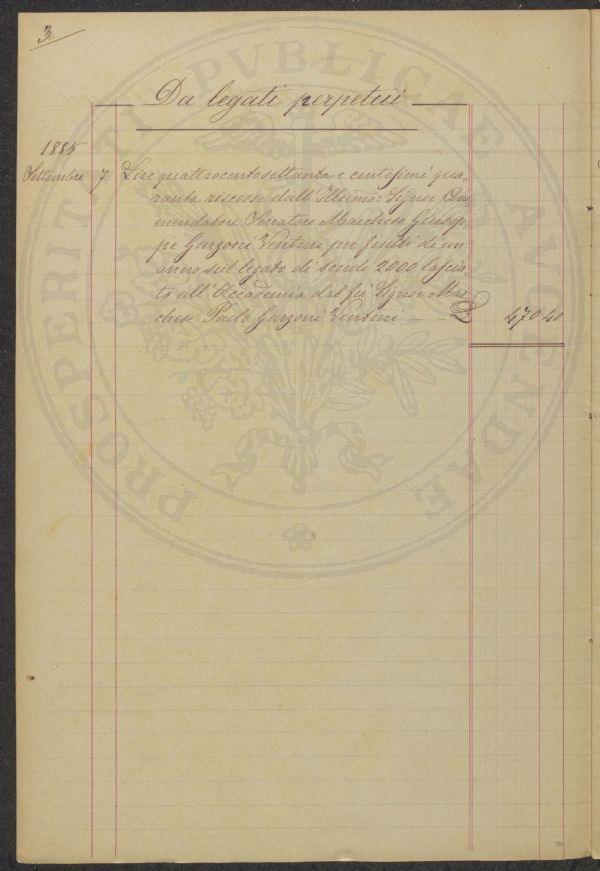 3
Da legati perpetui
1885
Settembre 7 Lire quattrocentosettanta e centesimi qua-
ranta riscosse dall'Illmo: Signor Com-
mendatore Senatore Marchese Giusep-
pe Garzoni Venturi per frutti di un
anno sul legato di scudi 2000 lascia-
to all'Accademia dal fù Signor Mar-
chese Paolo Garzoni Venturi — £ 470 40
PROSPERITATI PVBLICAE AVGENDAE